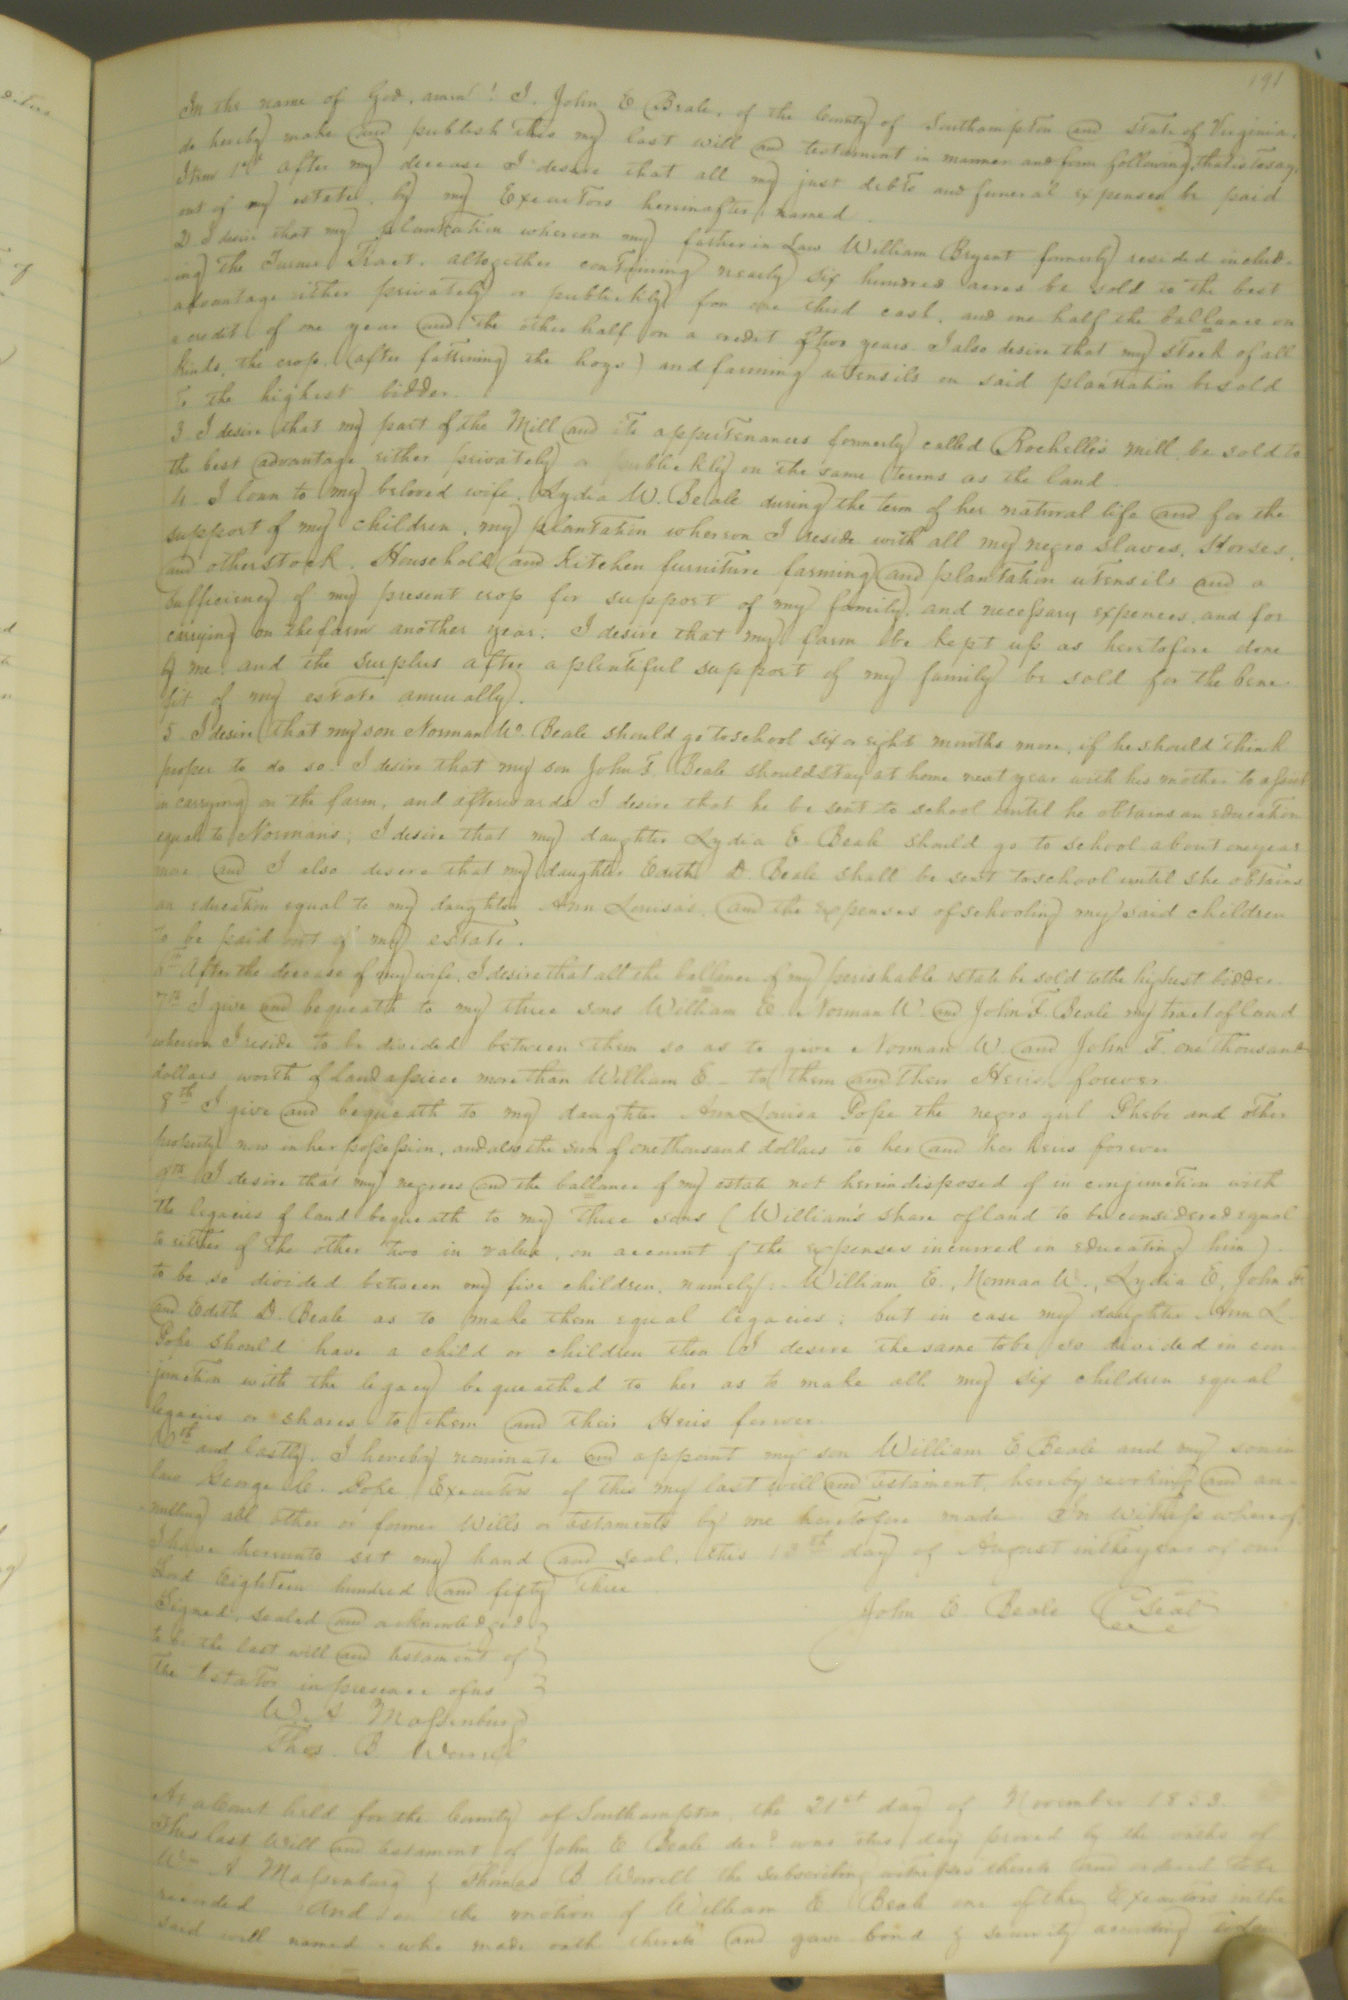 191
In the name of God, amen! I, John E Beale, of the County of Southampton and State of Virginia,
do hereby make and publish this my last will and testament in manner and form following, that is to say,
Item 1st After my decease I desire that all my just debts and funeral expenses be paid
out of my estate, by my Executors hereinafter named.
2 I desire that my plantation whereon my father in Law William Bryant formerly resided includ-
ing the Turner Tract, altogether containing nearly six hundred acres be sold to the best
advantage either privately or publickly for one third cash, and one half the ballance on
a credit of one year and the other half on a credit of two years. I also desire that my stock of all
kinds, the crop, (after fattening the hogs) and farming utensils on said plantation be sold
to the highest bidder.
3 I desire that my part of the Mill and its appertenances formerly called Rochelle's mill, be sold to
the best advantage either privately or publickly on the same terms as the land.
4. I loan to my beloved wife, Lydia W. Beale during the term of her natural life and for the
support of my children, my plantation whereon I reside with all my negro slaves, Horses,
and other stock, Household and Kitchen furniture farming and plantation utensils and a
sufficiency of my present crop for support of my family, and necessary expences, and for
carrying on the farm another year. I desire that my farm be kept up as heretofore done
by me and the surplus after a plentiful support of my family be sold for the bene-
fit of my estate annually.
5 I desire that my son Norman W. Beale should go to school six or eight months more, if he should think
proper to do so. I desire that my son John F. Beale should stay at home next year with his mother to assist
in carrying on the farm, and afterwards I desire that he be sent to school until he obtains an education
equal to Norman's; I desire that my daughter Lydia E Beale should go to school about one year
more and I also desire that my daughter Edith D. Beale shall be sent to school until she obtains
an education equal to my daughter Ann Louisa's, and the expenses of schooling my said children
to be paid out of my estate.
6th After the decease of my wife, I desire that all the ballance of my perishable estate be sold to the highest bidder.
7th I give and bequeath to my three sons William E Norman W. and John F. Beale my tract of land
whereon I reside to be divided between them so as to give Norman W. and John F. one thousand
dollars worth of land apiece more than William E - to them and their Heirs forever.
8th I give and bequeath to my daughter Ann Louisa Pope the negro girl Phebe and other
property now in her possession, and also the sum of one thousand dollars to her and her heirs forever
9th I desire that my negroes and the ballance of my estate not herein disposed of in conjunction with
the legacies of land bequeath to my three sons (William's share of land to be considered equal
to either of the other two in value, on account of the expenses incurred in educating him)
to be so divided between my five children, namely: William E., Norman W., Lydia E, John F.
and Edith D. Beale as to make them equal legacies; but in case my daughter Ann L.
Pope should have a child or children then I desire the same to be so divided in con-
junction with the legacy bequeathed to her as to make all my six children equal
legacies or shares to them and their Heirs forever.
10th and lastly, I hereby nominate and appoint my son William E Beale and my son in
law George C. Pope Executors of this my last will and testament, hereby revoking and an-
nulling all other or former Wills or testaments by me heretofore made. In witness whereof
I have hereunto set my hand and seal, this 18th day of August in the year of our
Lord Eighteen hundred and fifty Three
John E Beale Seal
Signed, sealed and acknowledged
to be the last will and testament of
the testator in presence of us
W. A Massenburg
Thos. B Worrell
At a Court held for the County of Southampton, the 21st day of November 1853.
This last Will and testament of John E Beale decd. was this day proved by the oaths of
Wm A Massenburg & Thomas B Worrell the subscribing witnesses thereto and ordered to be
recorded And on the motion of William E Beale one of the Executors in the
said will named, who made oath thereto and gave bond & security according to law